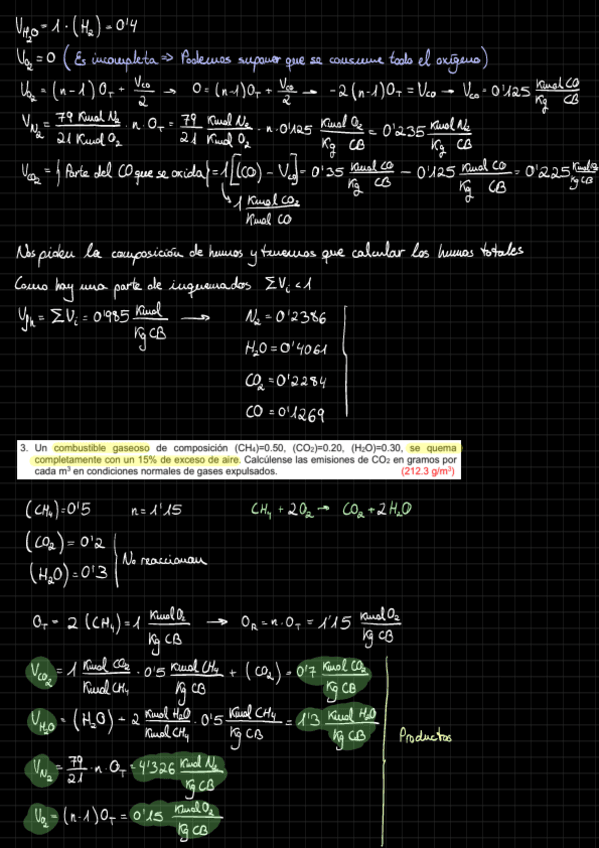 V_H₂O = 1 · (H₂) = 0'4
V_O₂ = 0 (Es incompleta => Podemos suponer que se consume todo el oxígeno)
V_O₂ = (n-1) O_T + V_CO/2 → 0 = (n-1) O_T + V_CO/2 → -2(n-1) O_T = V_CO → V_CO = 0'125 Kmol CO/Kg CB
V_N₂ = 79 Kmol N₂/21 Kmol O₂ · n · O_T = 79 Kmol N₂/21 Kmol O₂ · n · 0'125 Kmol O₂/Kg CB = 0'235 Kmol N₂/Kg CB
V_CO₂ = {Parte del CO que se oxida} = 1[(CO) - V_CO] = 0'35 Kmol CO/Kg CB - 0'125 Kmol CO/Kg CB = 0'225 Kmol/Kg CB
1 Kmol CO₂/Kmol CO
Nos piden la composición de humos y tenemos que calcular los humos totales
Como hay una parte de inquemados ΣVi < 1
V_fh = ΣVi = 0'985 Kmol/Kg CB → N₂ = 0'2386
H₂O = 0'4061
CO₂ = 0'2284
CO = 0'1269
3. Un combustible gaseoso de composición (CH₄)=0.50, (CO₂)=0.20, (H₂O)=0.30, se quema
completamente con un 15% de exceso de aire. Calcúlense las emisiones de CO₂ en gramos por
cada m³ en condiciones normales de gases expulsados. (212.3 g/m³)
(CH₄) = 0'5 n = 1'15 CH₄ + 2O₂ → CO₂ + 2H₂O
(CO₂) = 0'2
(H₂O) = 0'3 No reaccionan
O_T = 2 (CH₄) = 1 Kmol O₂/Kg CB → O_R = n · O_T = 1'15 Kmol O₂/Kg CB
V_CO₂ = 1 Kmol CO₂/Kmol CH₄ · 0'5 Kmol CH₄/Kg CB + (CO₂) = 0'7 Kmol CO₂/Kg CB
V_H₂O = (H₂O) + 2 Kmol H₂O/Kmol CH₄ · 0'5 Kmol CH₄/Kg CB = 1'3 Kmol H₂O/Kg CB
Productos
V_N₂ = 79/21 · n · O_T = 4'326 Kmol N₂/Kg CB
V_O₂ = (n-1) O_T = 0'15 Kmol O₂/Kg CB